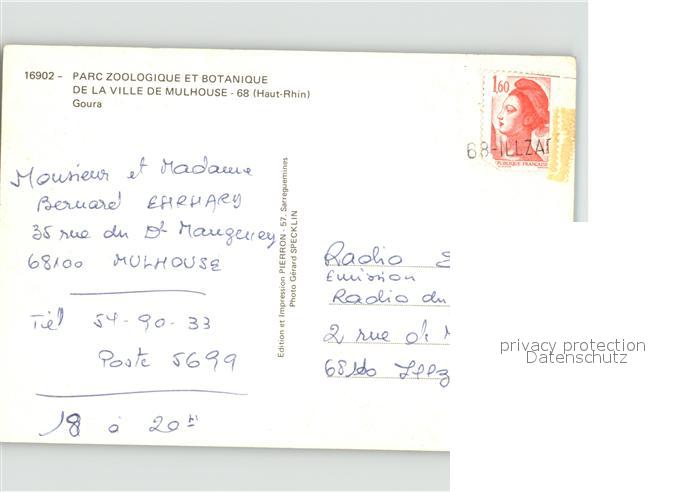 16902 - PARC ZOOLOGIQUE ET BOTANIQUE
DE LA VILLE DE MULHOUSE - 68 (Haut-Rhin)
Goura
1,60
RÉPUBLIQUE FRANÇAISE
68-ILLZA
Monsieur et Madame
Bernard EHRHARD
35 rue du Dr
68100 MULHOUSE
Tél 54-90-33
Poste 5699
18 à 20 H
Edition et Impression PIERRON - 57. Sarreguemines
Photo Gérard SPECKLIN
Radio
Emission
Radio du
2 rue de
Illz
privacy protection
Datenschutz